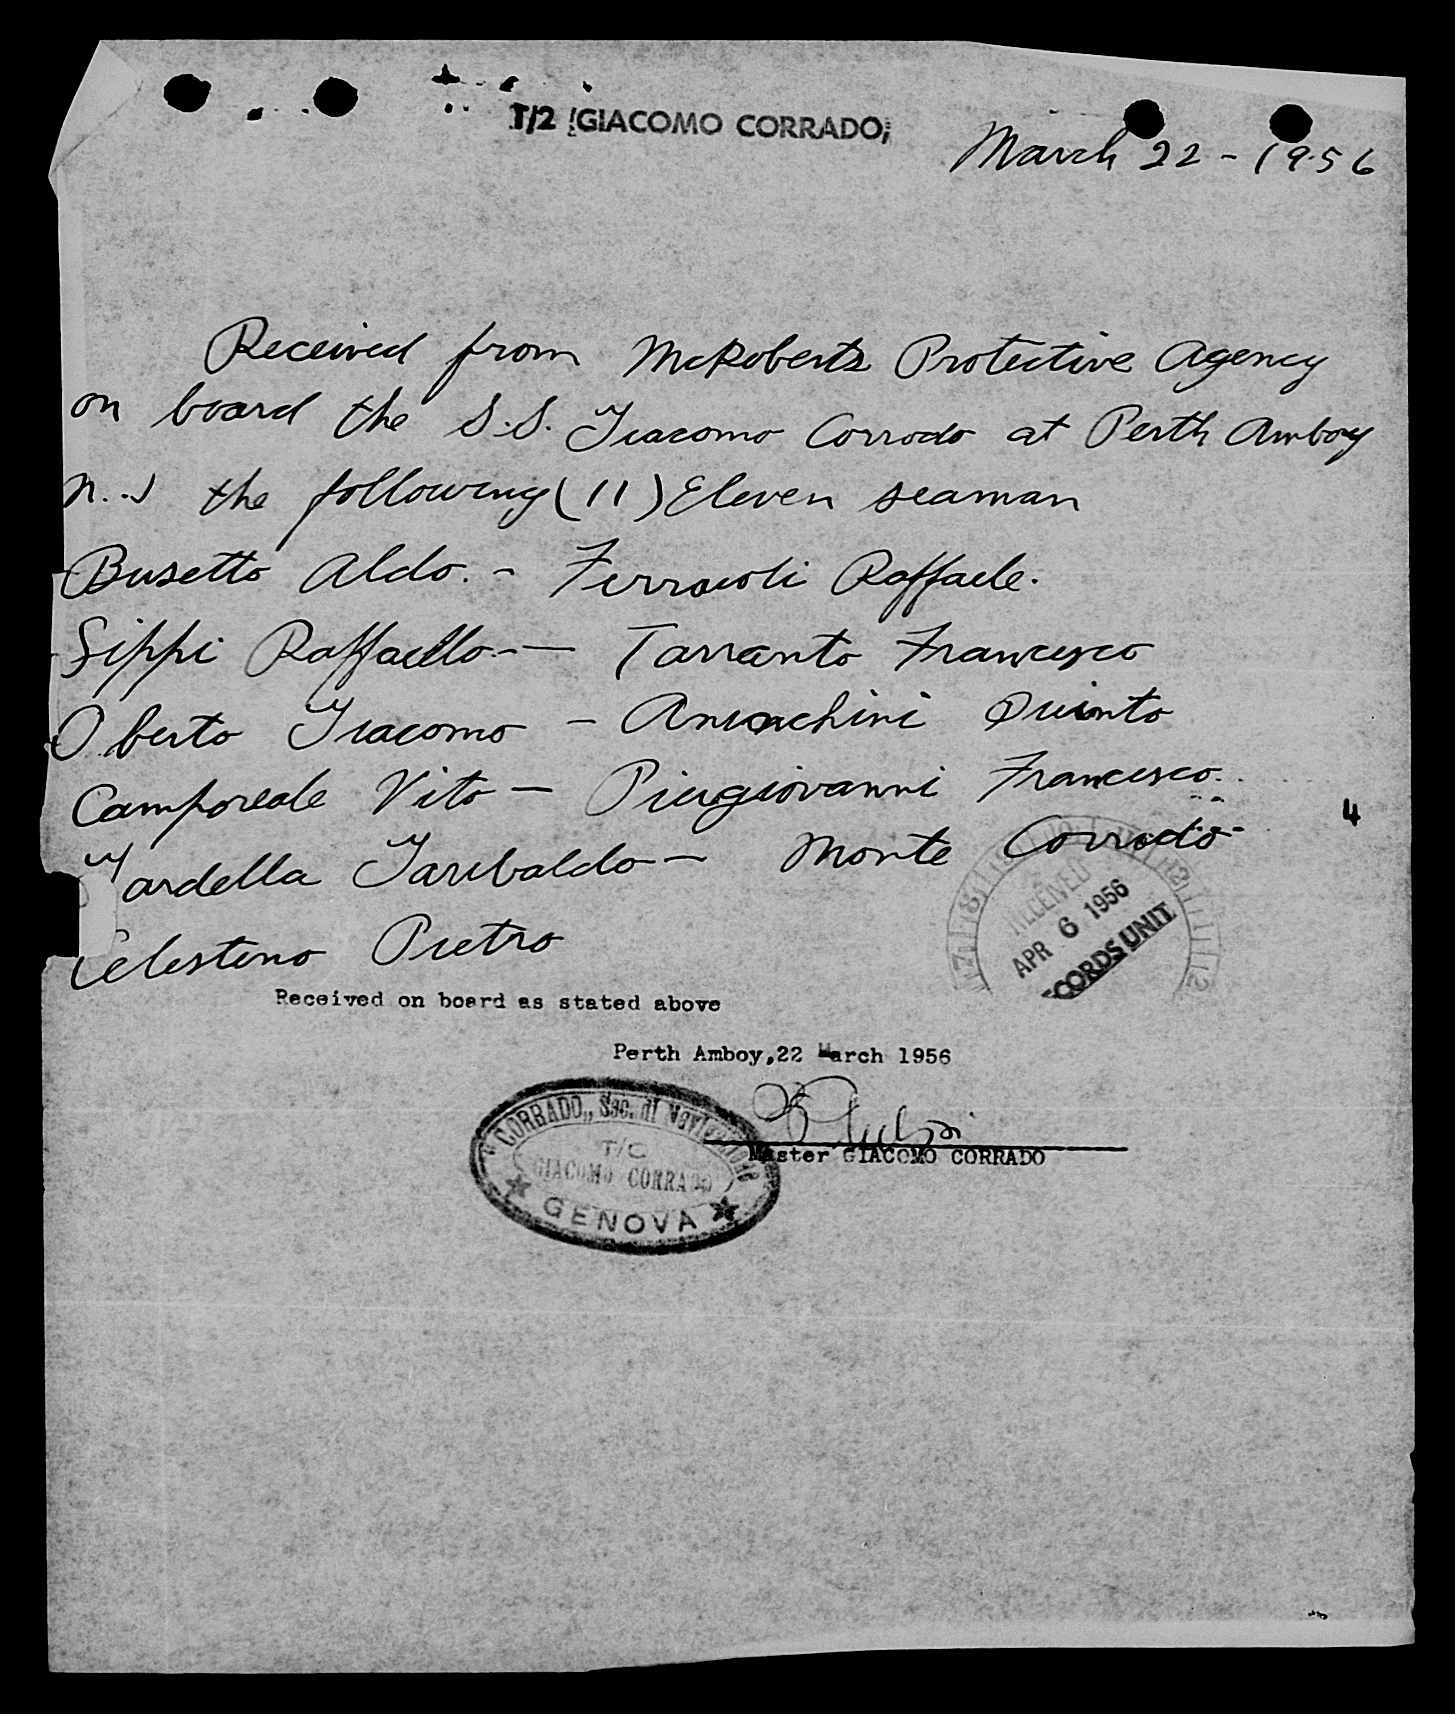 T/2 "GIACOMO CORRADO"
March 22 - 1956
Received from McRoberts Protective Agency
on board the S.S. Giacomo Corrodo at Perth Amboy
N.J the following (11) Eleven seaman
Busetto Aldo. - Ferraioli Raffaele.
Sippi Raffaello - Tarranto Francesco
Oberto Giacomo - Quinto
Camporeale Vito - Piergiovanni Francesco
4
Gardella Garibaldo - Monte Corrado -
RECEIVED
APR 6 1956
CORDS UNIT
Celestino Pietro
Received on board as stated above
Perth Amboy,22 March 1956
"CORRADO" Soc. di Navigazione
T/C
GIACOMO CORRADO
GENOVA
Master GIACOMO CORRADO